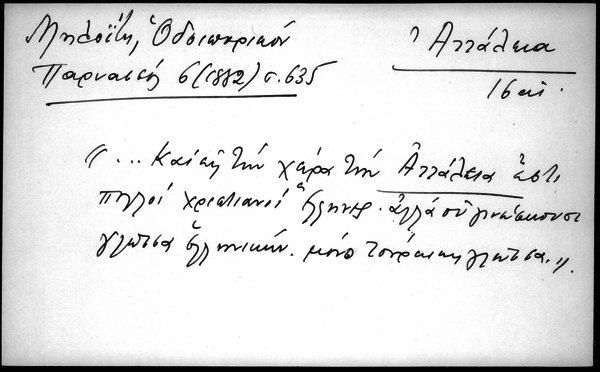 Μηλοΐτη, Ὁδοιπορικόν
Παρνασσός 6 (1882) σ. 635
Ἀττάλεια
16 αἰ.
"... Καὶ εἰς τὴν χώρα τὴν Ἀττάλεια ἔστι
πολλοί χριστιανοί Ἕλληνες. ἀλλά οὐ γινώσκουσι
γλῶτσα ἑλληνικήν. μόνο τούρκικη γλῶτσα."